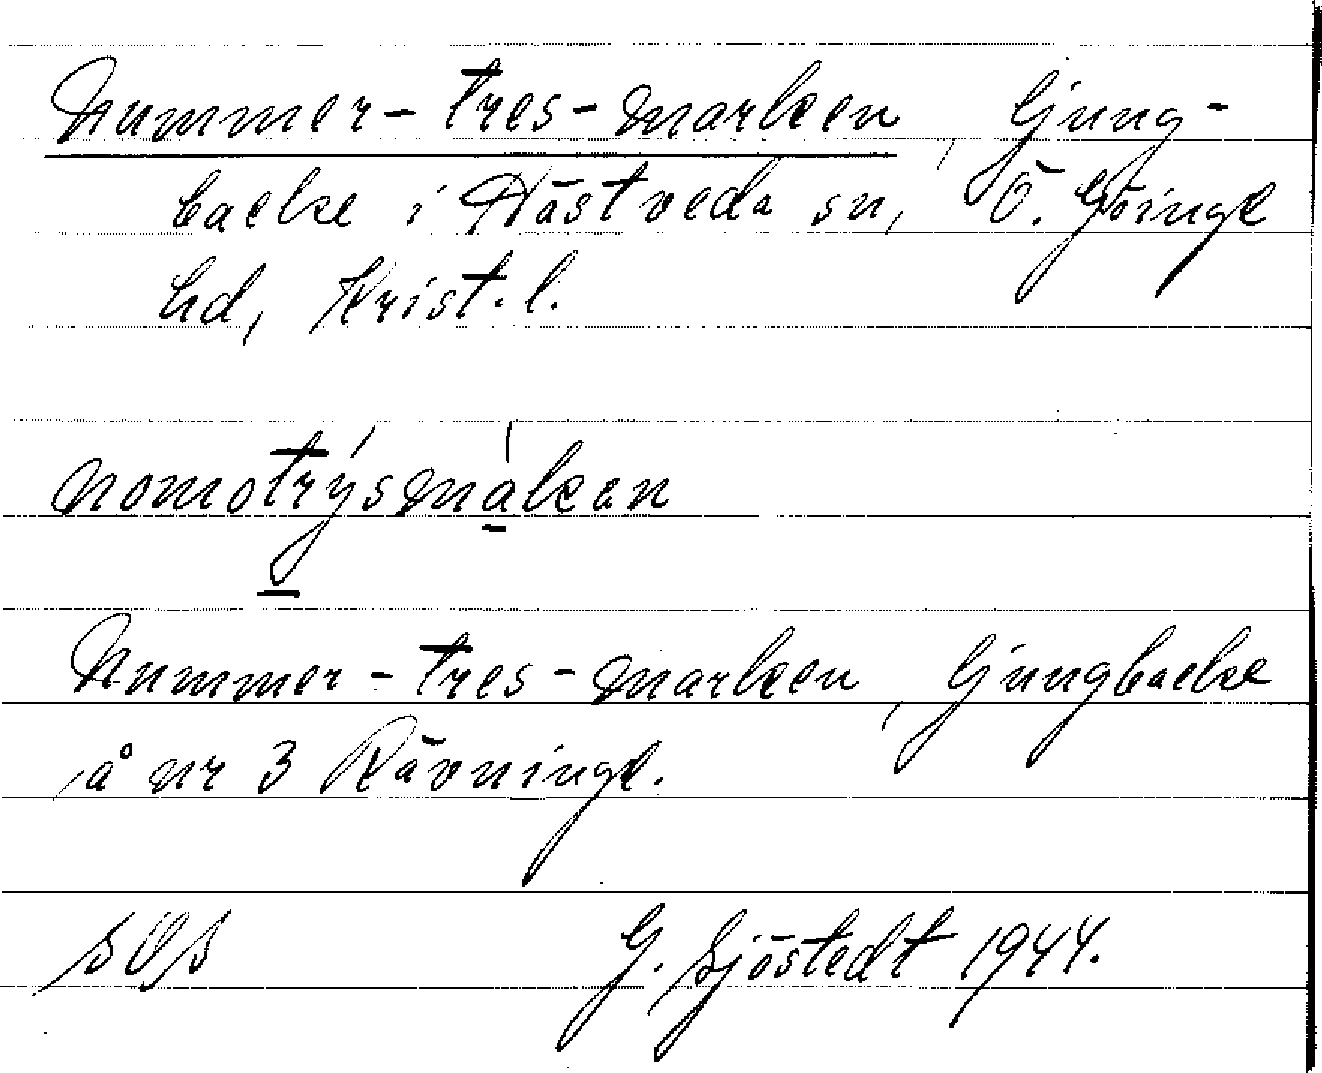 Nummer-tres-marken, ljung-
backe i Hästveda sn, Ö. Göinge
hd, Krist. l.
nomotrýsmákan
Nummer-tres-marken, ljungbacke
å nr 3 Rävninge.
G. Sjöstedt 1944.